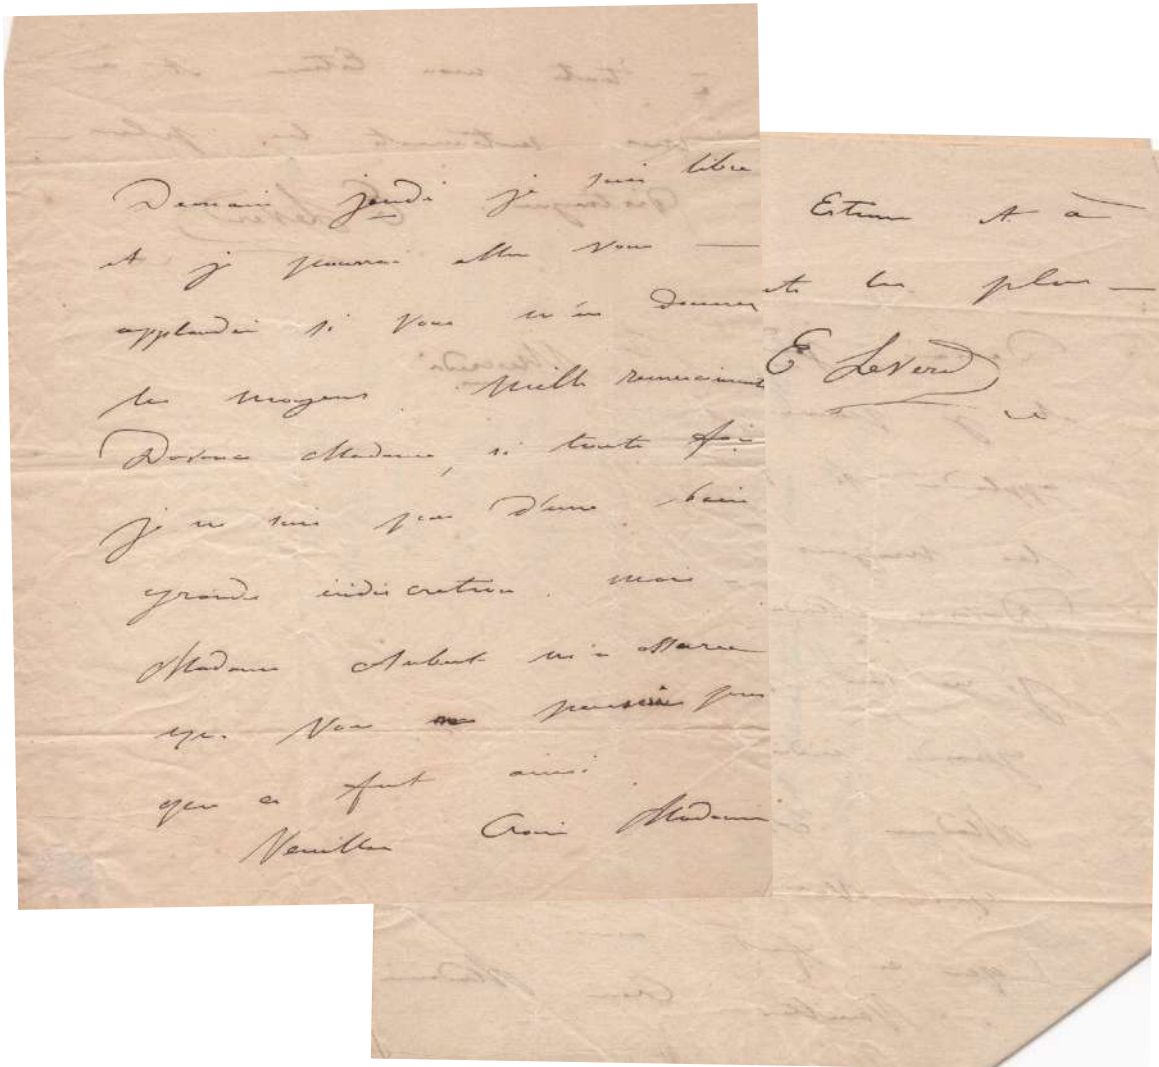 Demain jeudi je suis libre
et je pourrai aller vous
applaudir si vous m'en donnez
les moyens. Mille remerciements
D'avance Madame, si toute foi
je ne suis pas d'une trai
grande indiscretion. mais
Madame Aubert m'a assuree
que Vous ne pensiez pas
que ce fut ainsi.
Veuillez Croire Madame
Estime et à
les plus
E Leverd